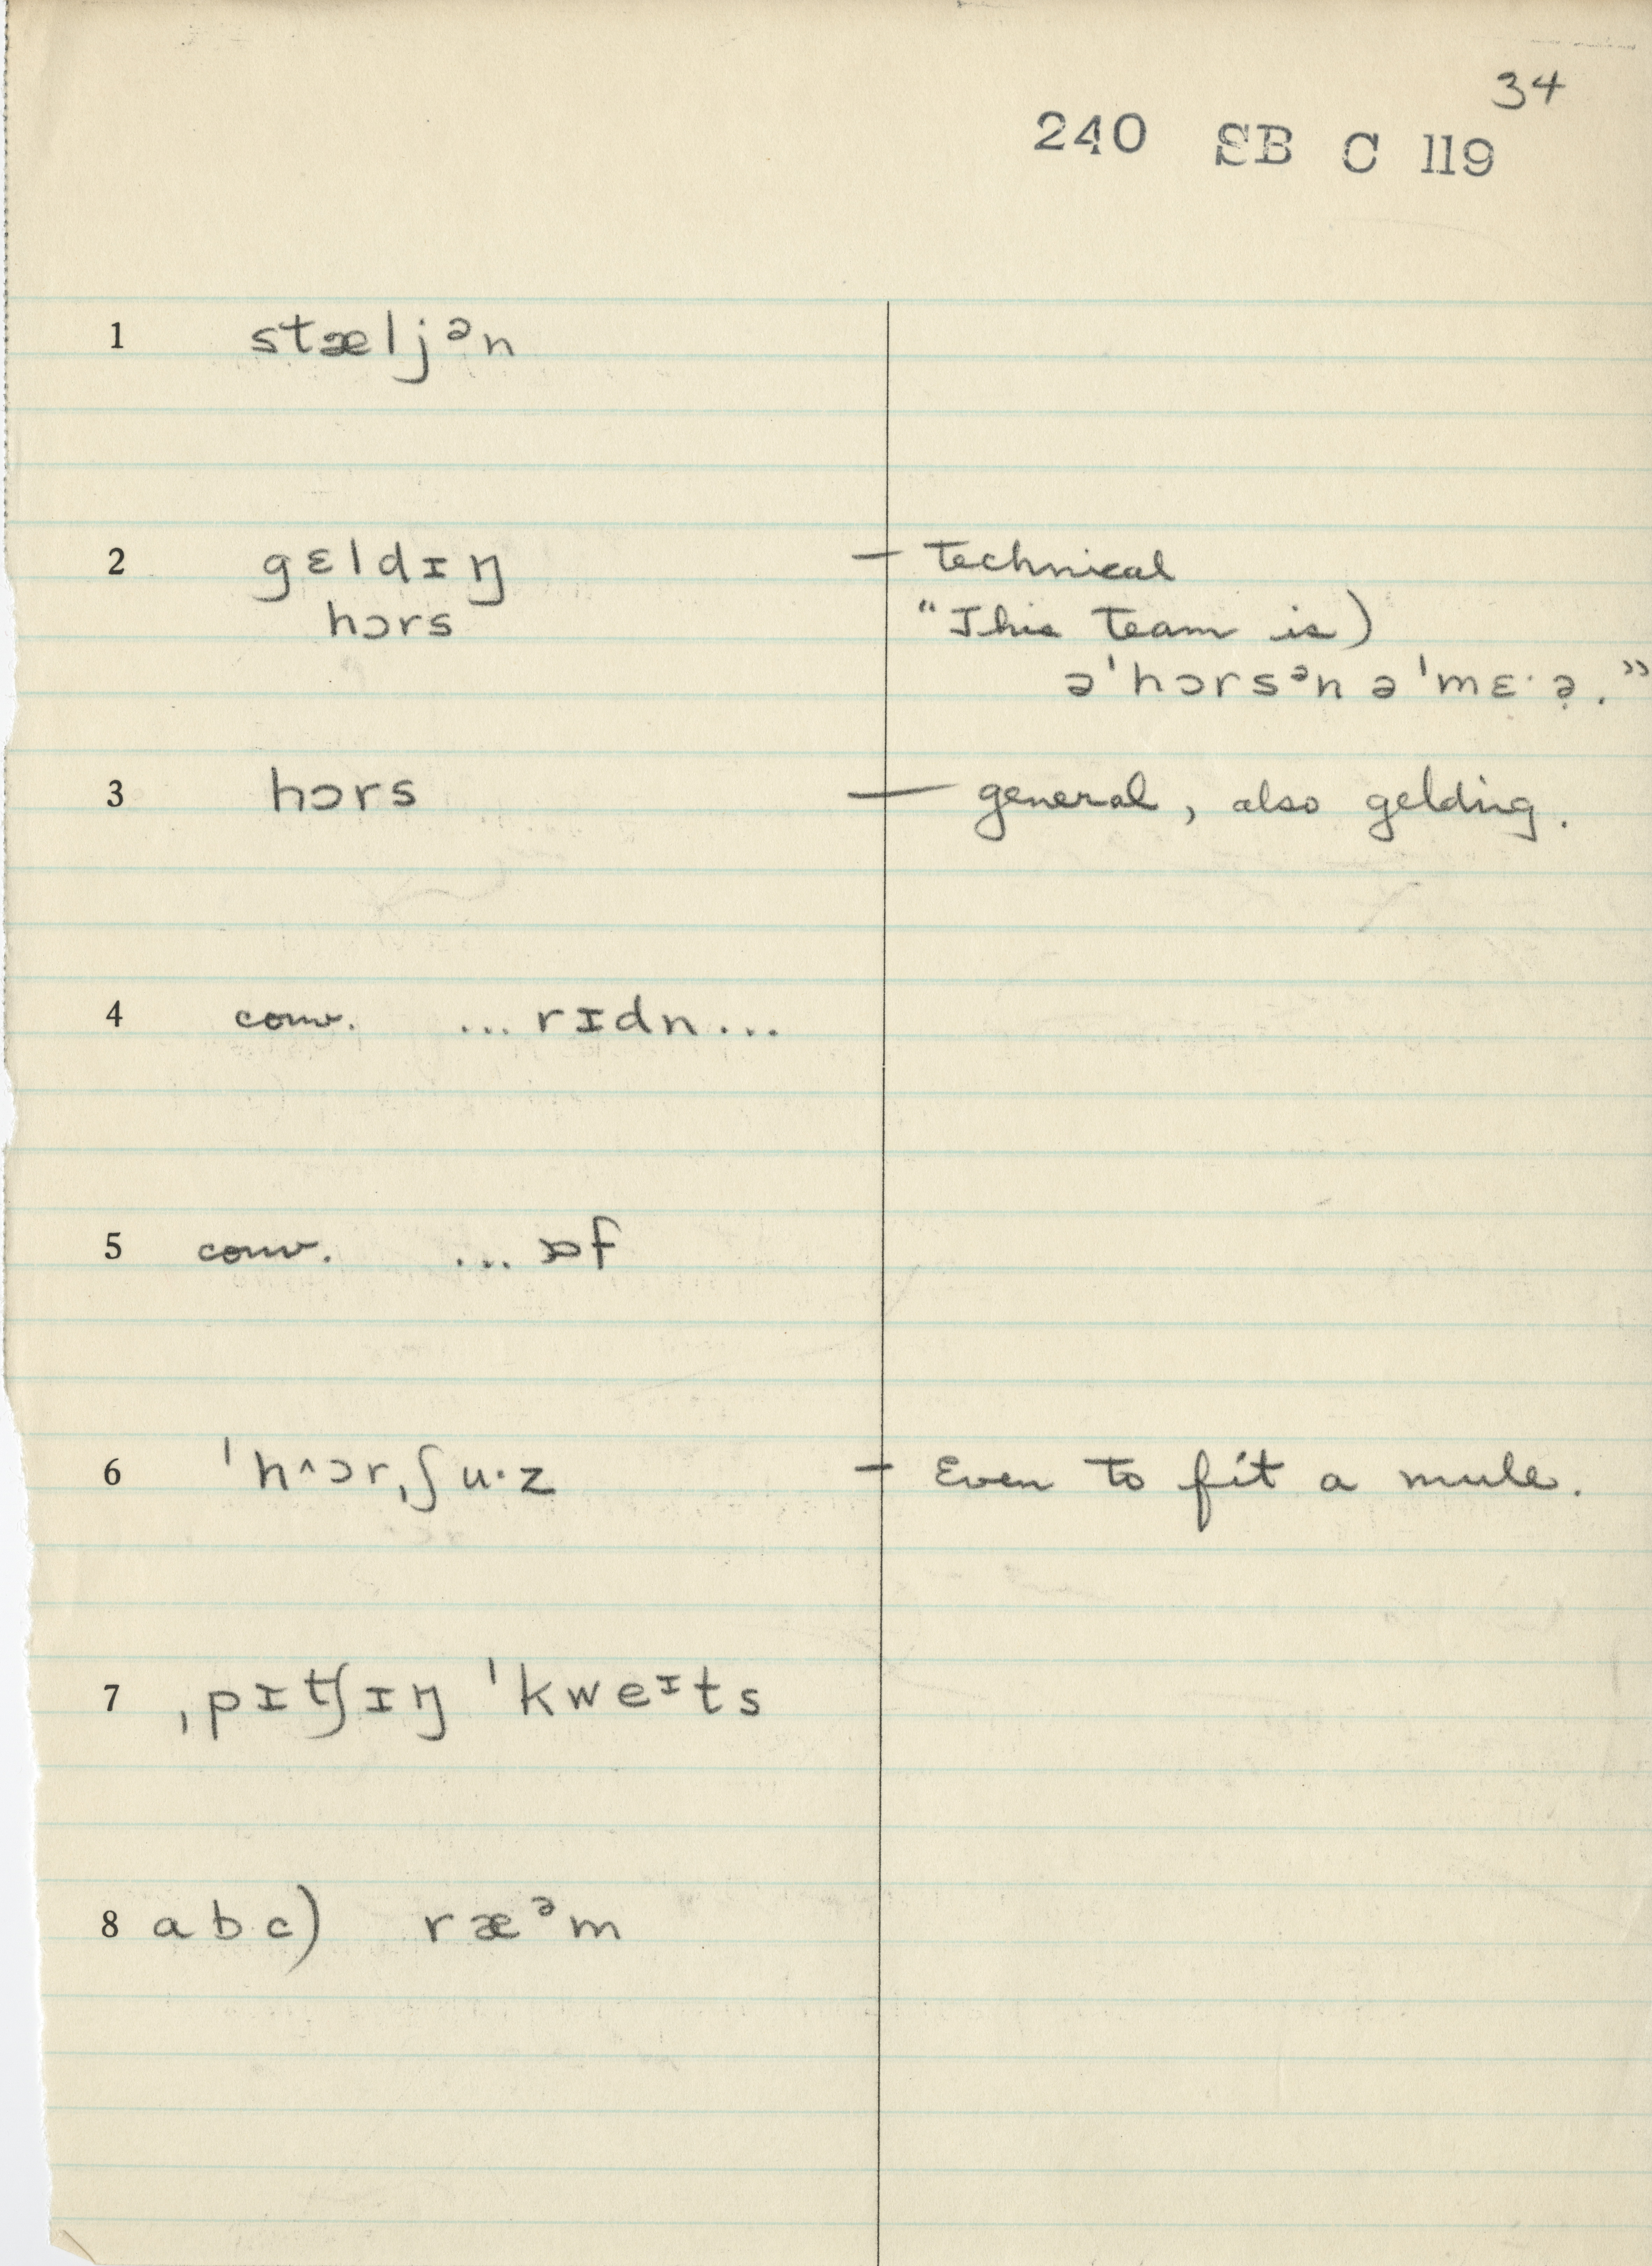 34
240 SB C 119
1 stæljᵊn
2 gɛldɪŋ — technical
hɔrs "This team is)
ə'hɔrsᵊn ə'mɛ·ə̣."
3 hɔrs — general, also gelding.
4 conv. ...rɪdn...
5 conv. ...ɒf
6 'h^ɔr,ʃu·z — Even to fit a mule.
7 ˌpɪʧɪŋ 'kweᶦts
8 abc) ræᵊm